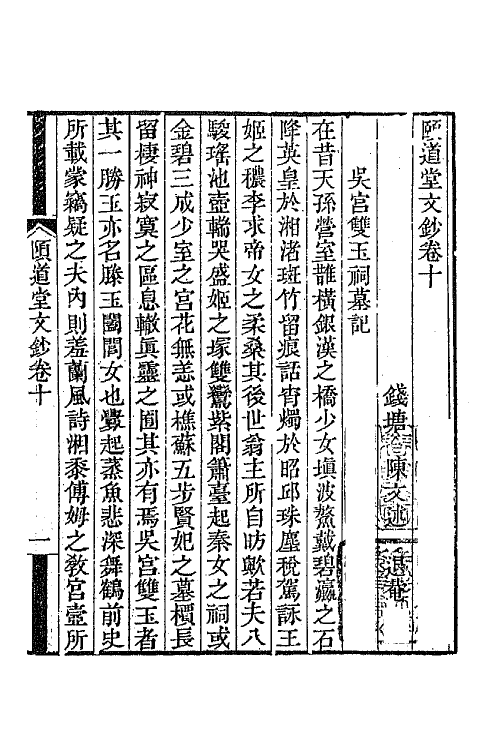 頤道堂文鈔卷十
錢塘陳文述
吳宮雙玉祠墓記
在昔天孫營室鵲橫銀漢之橋少女塡波鰲戴碧瀛之石
降英皇於湘渚斑竹留痕話宵燭於昭邱珠塵稅駕詠王
姬之穠李求帝女之柔桑其後世翁主所自昉歟若夫八
駿瑤池壺輪哭盛姬之塚雙鸞紫閣簫臺起秦女之祠或
金碧三成少室之宮花無恙或樵蘇五步賢妃之墓檟長
留棲神寂寞之區息轍眞靈之囿其亦有焉吳宮雙玉者
其一勝玉亦名滕玉闔閭女也釁起蒸魚悲深舞鶴前史
所載蒙竊疑之夫內則羞蘭風詩湘黍傅姆之敎宮壼所
頤道堂文鈔卷十
一